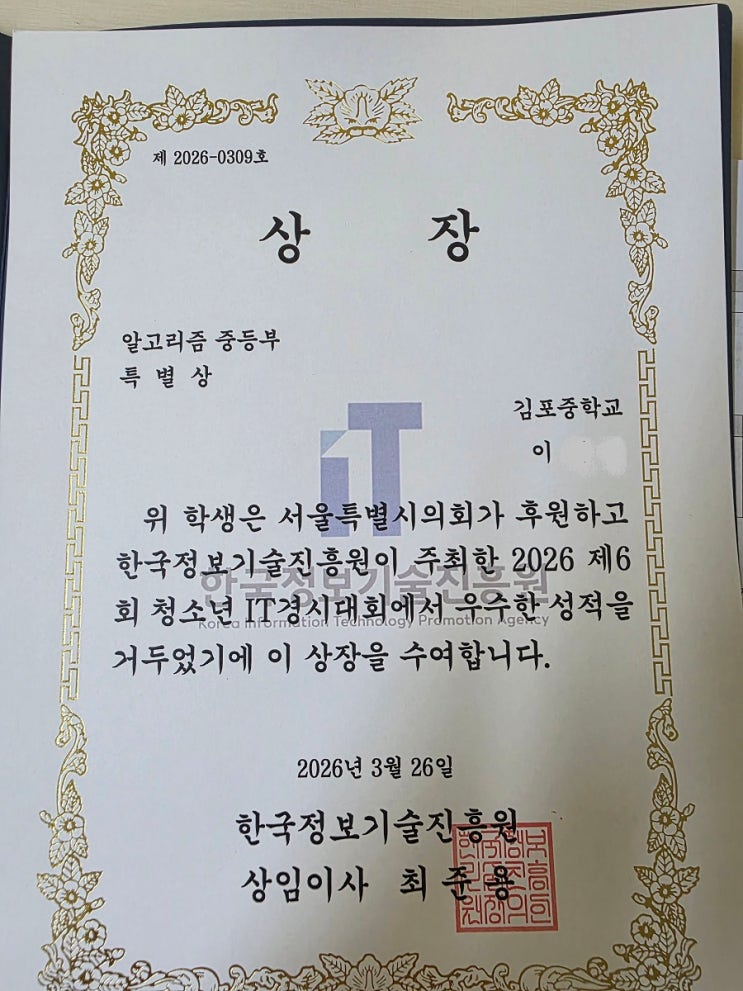 제 2026-0309호
상 장
알고리즘 중등부
특 별 상
김포중학교
이
iT
위 학생은 서울특별시의회가 후원하고
한국정보기술진흥원이 주최한 2026 제6
한국정보기술진흥원
회 청소년 IT경시대회에서 우수한 성적을
Korea Information Technology Promotion Agency
거두었기에 이 상장을 수여합니다.
2026년 3월 26일
한국정보기술진흥원
상임이사 최 준 용